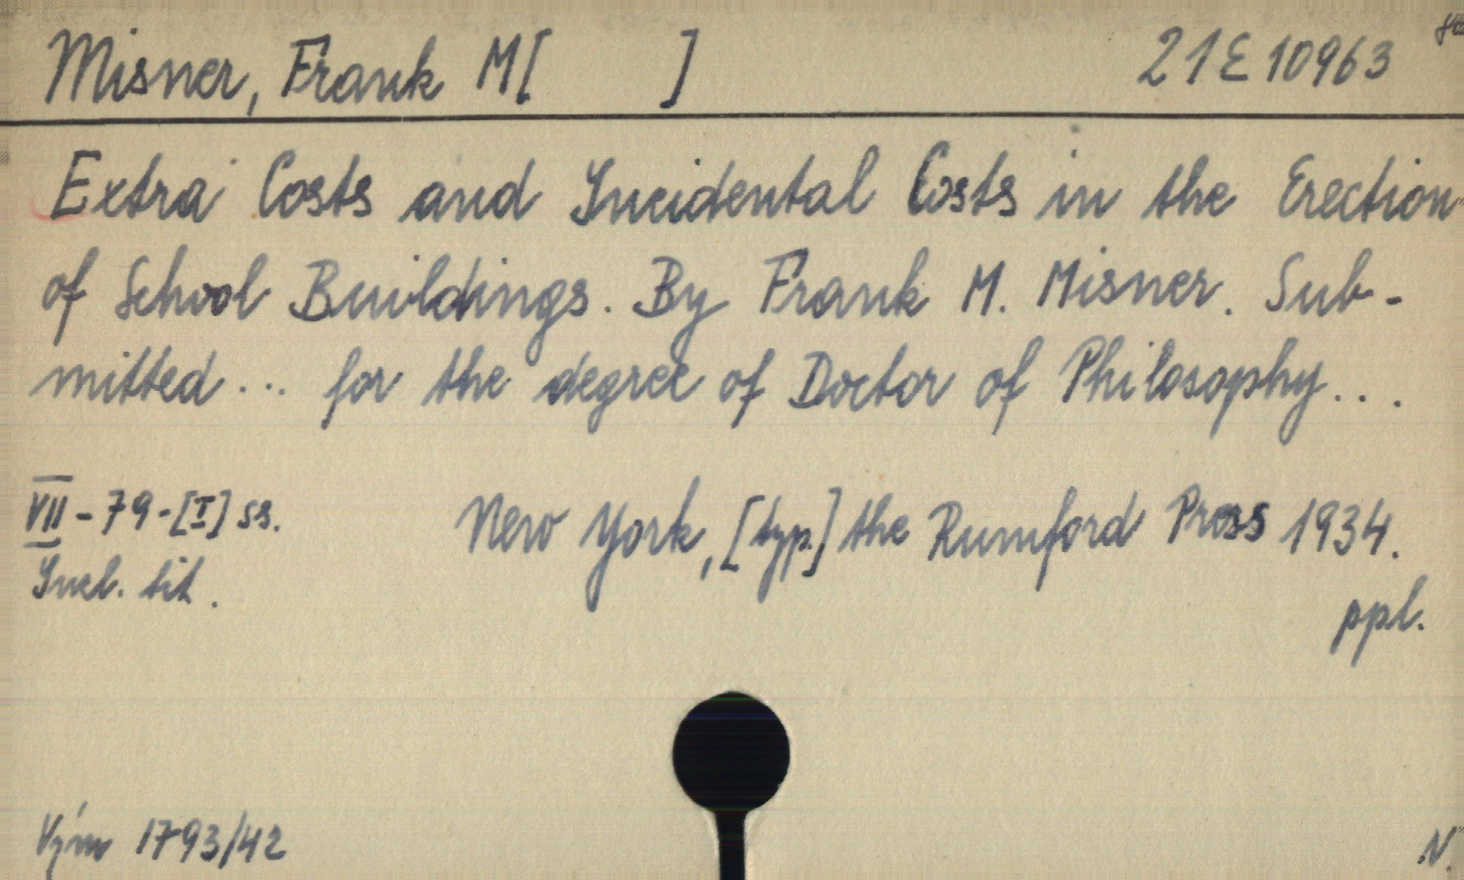 Misner, Frank M[ ] 21 E 10963
Extra Costs and Incidental Costs in the Erection
of School Buildings. By Frank M. Misner. Sub-
mitted... for the degree of Doctor of Philosophy...
VII-79-[I] ss. New York, [typ.] the Rumford Press 1934.
Incl. tit. ppl.
Vým 1793/42 N.